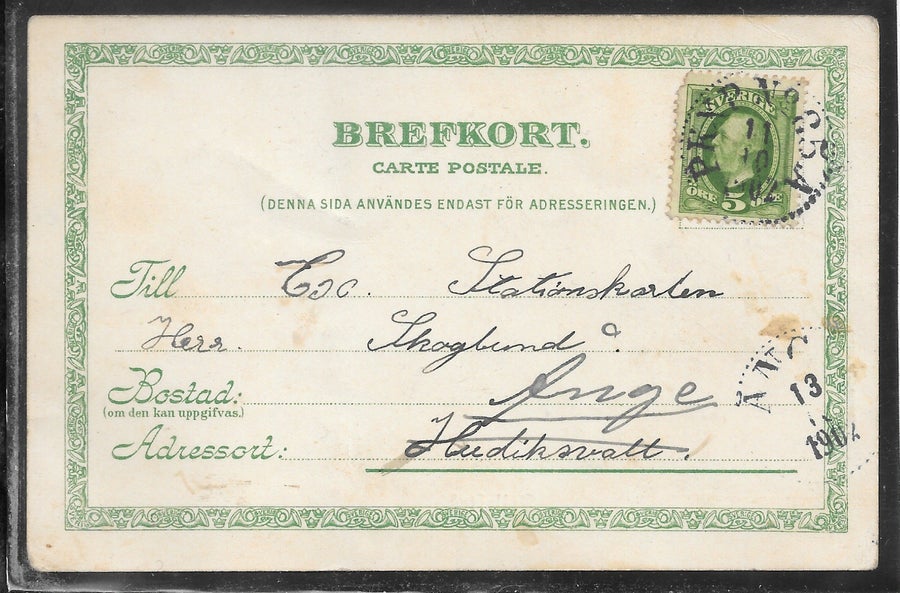 BREFKORT.
CARTE POSTALE.
(DENNA SIDA ANVÄNDES ENDAST FÖR ADRESSERINGEN.)
SVERIGE
ÖRE 5 ÖRE
PKXP No 35 A
11
Till Exc. Stationskarlen
Herr. Skoglund
Ånge
Bostad:
(om den kan uppgifvas.)
Adressort: Hudiksvall.
ÅNG
13
1902